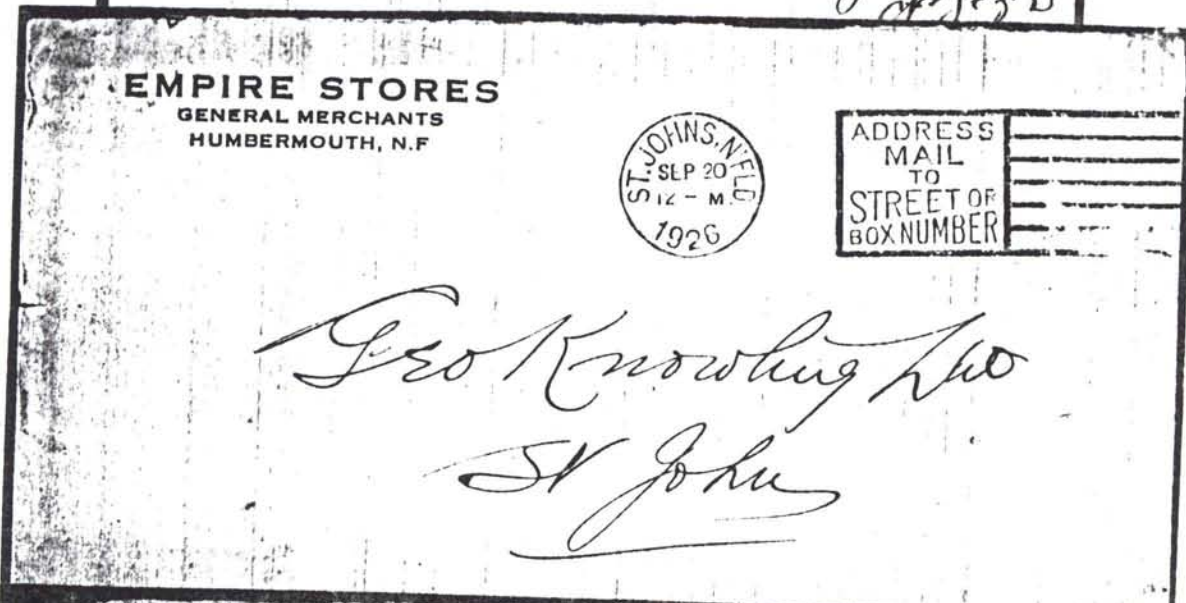 EMPIRE STORES
GENERAL MERCHANTS
HUMBERMOUTH, N.F
ST. JOHNS, N'FLD
SEP 20
12 - M.
1926
ADDRESS
MAIL
TO
STREET OR
BOX NUMBER
Geo Knowling Ltd
St Johns